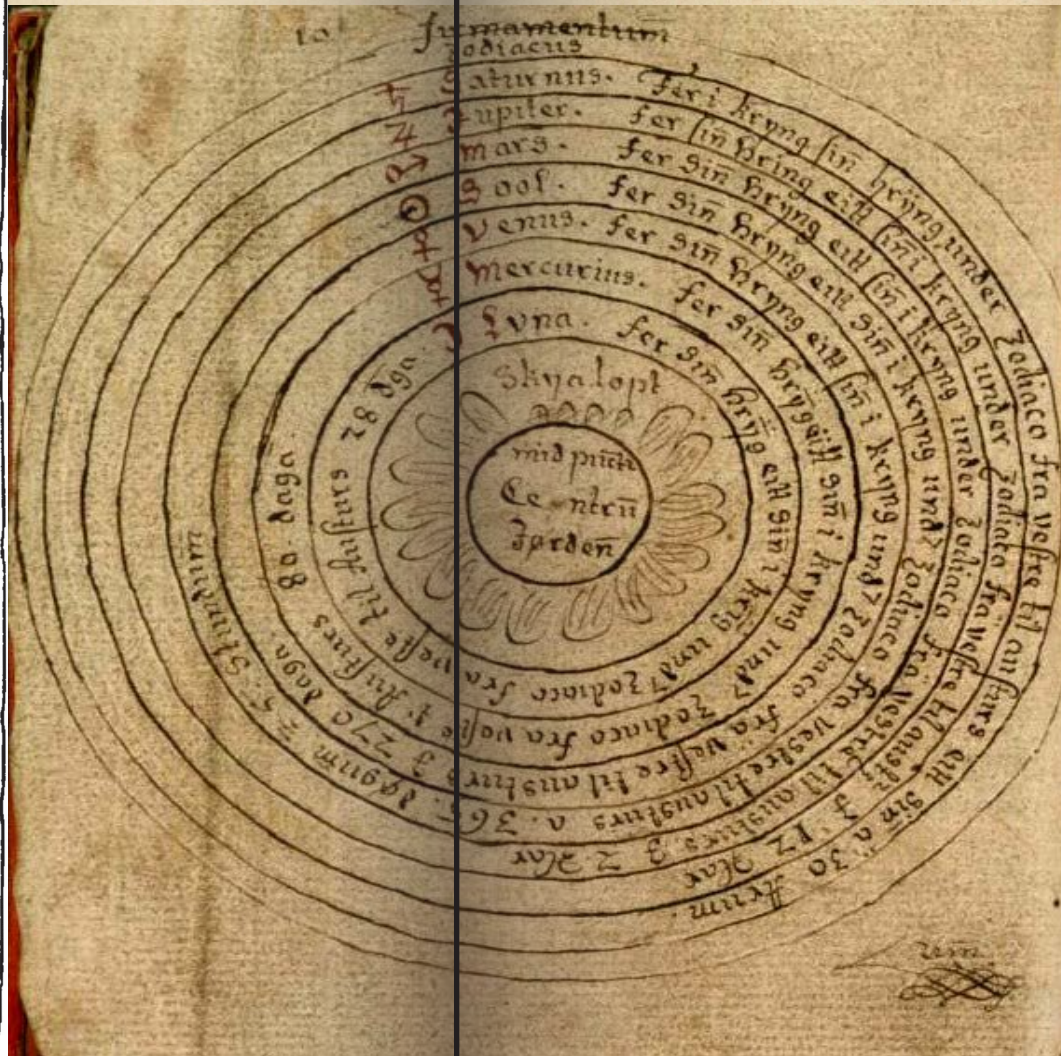 10
firmamentum
Zodiacus
♄ Saturnus. fer i kryng sin̄ hrÿng under Zodiaco fra vestre til austurs eitt sin̄ a 30 Arum.
♃ Jupiter. fer sin̄ hring eitt sin̄ i kryng under Zodiaco fra vestre til austurs J 12 Aar
♂ Mars. fer sin̄ hryng eitt sin̄ i kryng under Zodiaco fra vestre til austurs J 2 Aar
☉ Sool. fer sin̄ hryng eitt sin̄ i kryng und Zodiaco fra vestre til austurs a. 365. dagum Z 6. Stundum̄
♀ Venus. fer sin̄ hryng eitt sin̄ i kryng und Zodiaco fra vestre til austurs J 270 daga.
☿ Mercurius. fer sin̄ hryg eitt sin̄ i kryng und Zodiaco fra veste Austurs 80. daga.
☽ Luna. fer sin̄ hrȳg eitt sin̄ i krȳg und Zodiaco fra veste til Austurs 28 dga.
Skyalopt
mid pūct
Centrū
Jorden̄